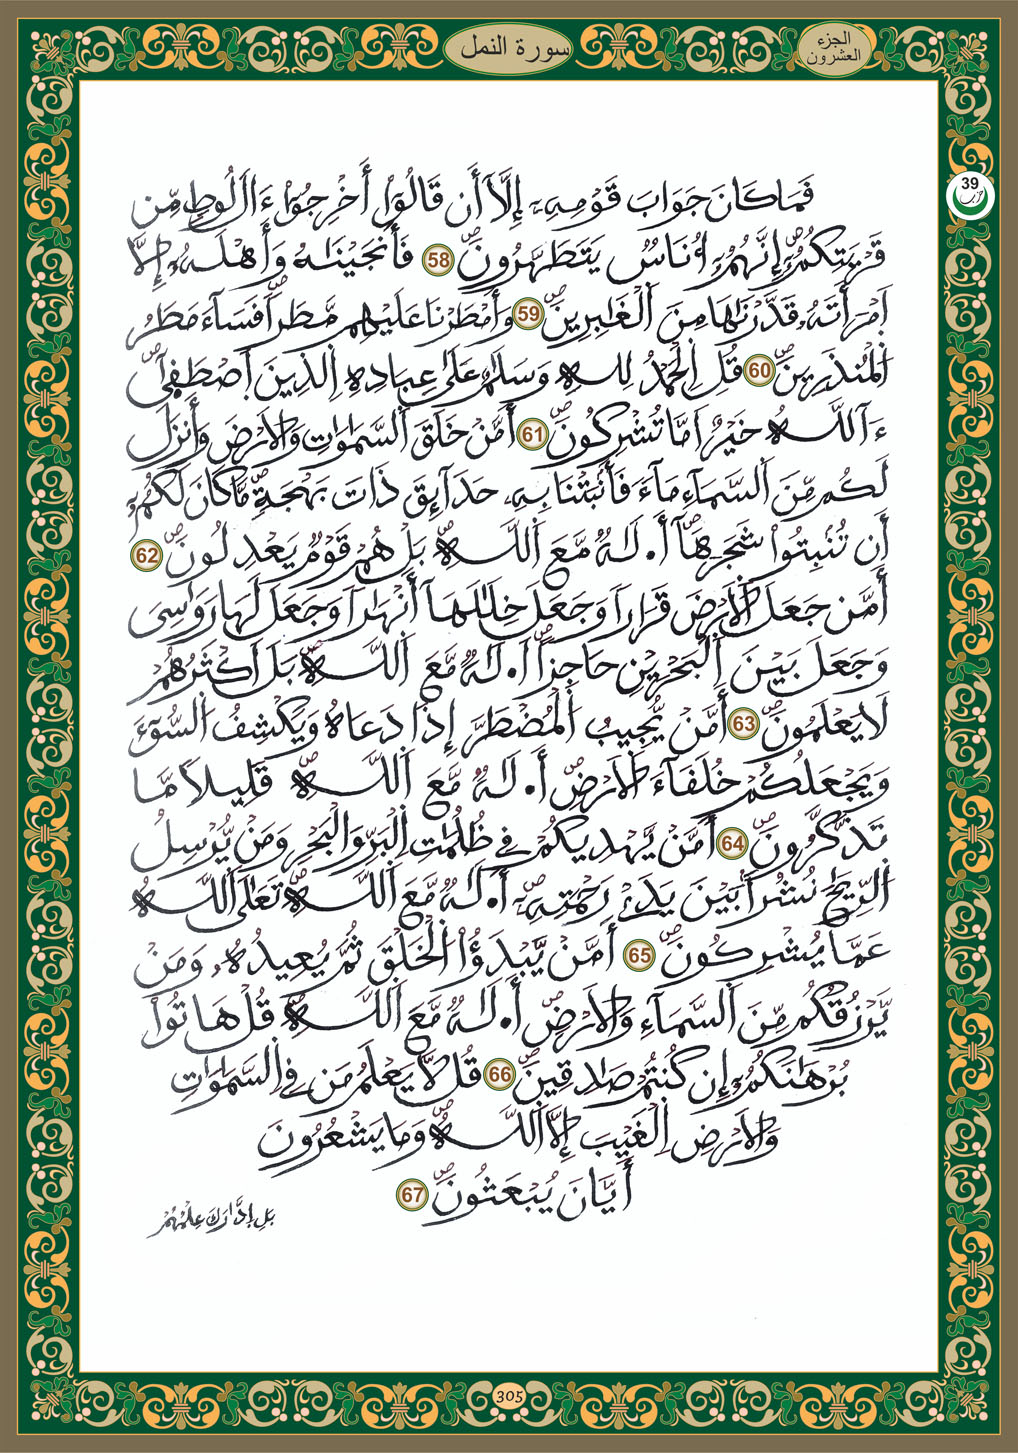 سورة النمل
الجزء
العشرون
39
حزب
فَمَا كَانَ جَوَابَ قَوْمِهِۦٓ إِلَّآ أَن قَالُوٓاْ أَخْرِجُوٓاْ ءَالَ لُوطٍ مِّن
قَرْيَتِكُمُۥٓ إِنَّهُمُۥٓ أُنَاسٌ يَتَطَهَّرُونَ 58 فَأَنجَيْنَٰهُ وَأَهْلَهُۥٓ إِلَّا
اَمْرَأَتَهُۥ قَدَّرْنَٰهَا مِنَ اَلْغَٰبِرِينَ 59 وَأَمْطَرْنَا عَلَيْهِم مَّطَراً فَسَآءَ مَطَرُ
اُلْمُنذَرِينَ 60 قُلِ اِلْحَمْدُ لِلهِ وَسَلَٰمٌ عَلَىٰ عِبَادِهِ اِلذِينَ اَصْطَفِىٰٓ
ءَآللَّهُ خَيْرٌ اَمَّا تُشْرِكُونَ 61 أَمَّنْ خَلَقَ اَلسَّمَٰوَٰتِ وَالَارْضَ وَأَنزَلَ
لَكُم مِّنَ اَلسَّمَآءِ مَآءً فَأَنۢبَتْنَا بِهِۦ حَدَآئِقَ ذَاتَ بَهْجَةٍ مَّا كَانَ لَكُمُۥٓ
أَن تُنۢبِتُواْ شَجَرَهَآ أَ۟لَٰهٌ مَّعَ اَللَّهِ بَلْ هُمْ قَوْمٌ يَعْدِلُونَ 62
أَمَّن جَعَلَ اَلَارْضَ قَرَاراً وَجَعَلَ خِلَٰلَهَآ أَنْهَٰراً وَجَعَلَ لَهَا رَوَٰسِىَ
وَجَعَلَ بَيْنَ اَلْبَحْرَيْنِ حَاجِزاً أَ۟لَٰهٌ مَّعَ اَللَّهِ بَلَ اَكْثَرُهُمْ
لَا يَعْلَمُونَ 63 أَمَّنْ يُّجِيبُ اُلْمُضْطَرَّ إِذَا دَعَاهُ وَيَكْشِفُ اُلسُّوٓءَ
وَيَجْعَلُكُمْ خُلَفَآءَ اَلَارْضِ أَ۟لَٰهٌ مَّعَ اَللَّهِ قَلِيلًا مَّا
تَذَّكَّرُونَ 64 أَمَّنْ يَّهْدِيكُمْ فِي ظُلُمَٰتِ اِلْبَرِّ وَالْبَحْرِ وَمَنْ يُّرْسِلُ
اُلرِّيَٰحَ نُشُراً بَيْنَ يَدَىْ رَحْمَتِهِۦٓ أَ۟لَٰهٌ مَّعَ اَللَّهِ تَعَٰلَى اَللَّهُ
عَمَّا يُشْرِكُونَ 65 أَمَّنْ يَّبْدَؤُاْ اُلْخَلْقَ ثُمَّ يُعِيدُهُۥ وَمَنْ
يَّرْزُقُكُم مِّنَ اَلسَّمَآءِ وَالَارْضِ أَ۟لَٰهٌ مَّعَ اَللَّهِ قُلْ هَاتُواْ
بُرْهَٰنَكُمُۥٓ إِن كُنتُمْ صَٰدِقِينَ 66 قُل لَّا يَعْلَمُ مَن فِي اِلسَّمَٰوَٰتِ
وَالَارْضِ اِلْغَيْبَ إِلَّا اَللَّهُ وَمَا يَشْعُرُونَ
أَيَّانَ يُبْعَثُونَ 67
بَلِ اِدَّٰرَكَ عِلْمُهُمْ
305